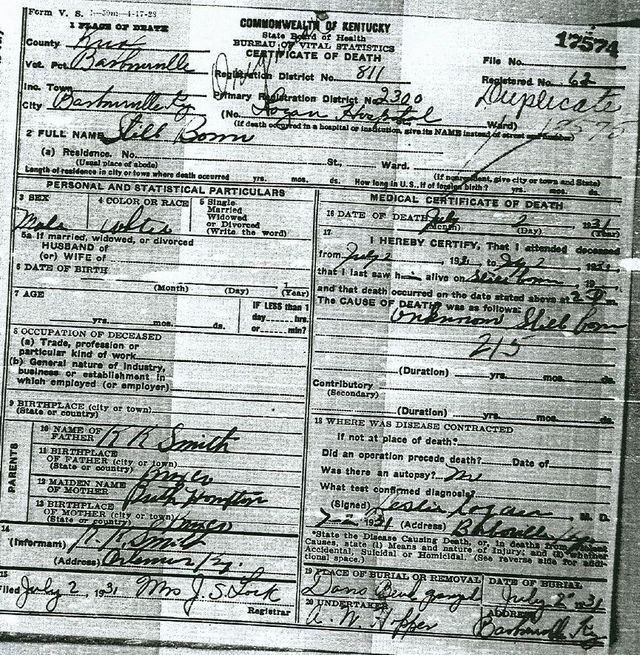 Form V. S. 1-50m-4-17-28
COMMONWEALTH OF KENTUCKY
State Board of Health
BUREAU OF VITAL STATISTICS
CERTIFICATE OF DEATH
17574
1 PLACE OF DEATH
County Knox
Vot. Pct. Barbourville
Inc. Town
City Barbourville Ky
Registration District No. 811
Primary Registration District No. 2300
(No. Logan Hospital
(If death occurred in a hospital or institution, give its NAME instead of street and number)
File No.
Registered No. 62
Duplicate
Ward)
2 FULL NAME Still Born
(a) Residence. No. St., Ward.
(Usual place of abode) (If nonresident, give city or town and State)
Length of residence in city or town where death occurred yrs. mos. ds. How long in U. S., if of foreign birth? yrs. mos. ds.
PERSONAL AND STATISTICAL PARTICULARS
3 SEX
Male
4 COLOR OR RACE
White
5 Single
Married
Widowed
or Divorced
(Write the word)
5a If married, widowed, or divorced
HUSBAND of
(or) WIFE of
6 DATE OF BIRTH
(Month) (Day) (Year)
7 AGE
yrs. mos. ds.
IF LESS than 1
day hrs.
or min?
8 OCCUPATION OF DECEASED
(a) Trade, profession or
particular kind of work
(b) General nature of industry,
business or establishment in
which employed (or employer)
9 BIRTHPLACE (city or town)
(State or country)
PARENTS
10 NAME OF
FATHER K K Smith
11 BIRTHPLACE
OF FATHER (city or town)
(State or country) Knox
12 MAIDEN NAME
OF MOTHER Ruth Hampton
13 BIRTHPLACE
OF MOTHER (city or town)
(State or country) Knox
14
(Informant) K. K Smith
(Address) Artemus Ky.
15
Filed July 2, 1931 Mrs J. S. Lock
Registrar
MEDICAL CERTIFICATE OF DEATH
16 DATE OF DEATH July 2 1931
(Month) (Day) (Year)
17
I HEREBY CERTIFY, That I attended deceased
from July 2 1931 to July 2 1931
that I last saw h alive on 19
and that death occurred on the date stated above at
The CAUSE OF DEATH was as follows:
Unknown Still born
215
(Duration) yrs. mos. ds.
Contributory
(Secondary)
(Duration) yrs. mos. ds.
18 WHERE WAS DISEASE CONTRACTED
If not at place of death?
Did an operation precede death? Date of
Was there an autopsy? no
What test confirmed diagnosis?
(Signed) Leslie Logan M. D.
7-2 1931 (Address) Barbourville Ky
*State the Disease Causing Death, or, in deaths from Violent
Causes, state (1) Means and nature of Injury, and (2) whether
Accidental, Suicidal or Homicidal. (See reverse side for addi-
tional space.)
19 PLACE OF BURIAL OR REMOVAL
DATE OF BURIAL
July 2 1931
20 UNDERTAKER
A. W. Hopper
ADDRESS
Barbourville Ky